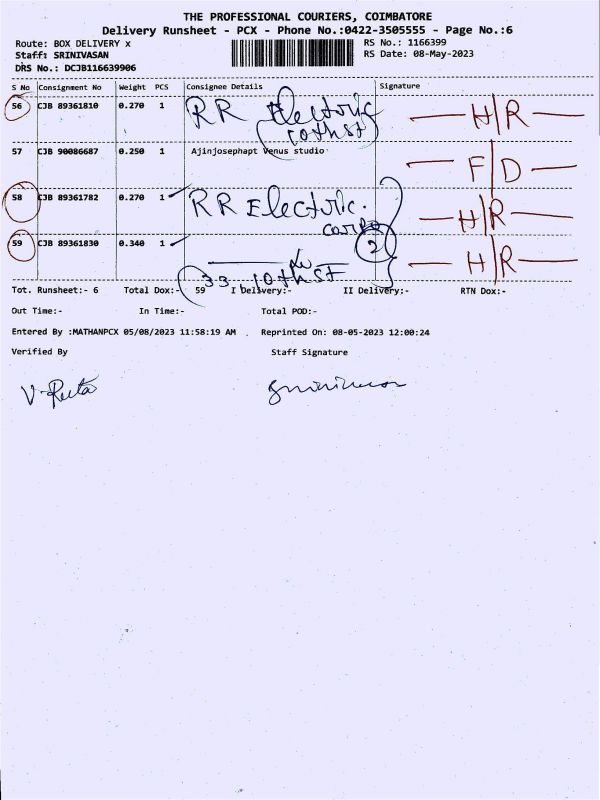 THE PROFESSIONAL COURIERS, COIMBATORE
Delivery Runsheet - PCX - Phone No.:0422-3505555 - Page No.:6
Route: BOX DELIVERY x RS No.: 1166399
Staff: SRINIVASAN RS Date: 08-May-2023
DRS No.: DCJB116639906
S No Consignment No Weight PCS Consignee Details Signature
56 CJB 89361810 0.270 1 RR Electric H/R
10th st
57 CJB 90086687 0.250 1 Ajinjosephapt Venus studio F/D
58 CJB 89361782 0.270 1 RR Electric. H/R
59 CJB 89361830 0.340 1 2 H/R
33, 10th ST
Tot. Runsheet:- 6 Total Dox:- 59 I Delivery:- II Delivery:- RTN Dox:-
Out Time:- In Time:- Total POD:-
Entered By :MATHANPCX 05/08/2023 11:58:19 AM . Reprinted On: 08-05-2023 12:00:24
Verified By Staff Signature